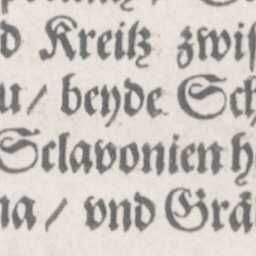 d Kreitz zwiſ
u/ beyde Sch
Sclavonien h
na / vnd Grä